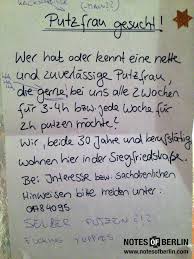 Putzfrau gesucht!
Wer hat oder kennt eine nette
und zuverlässige Putzfrau,
die gerne bei uns alle 2 Wochen
für 3-4h bzw. jede Woche für
2h putzen möchte?
Wir, beide 30 Jahre und berufstätig
wohnen hier in der Siegfriedstraße.
Bei Interesse bzw. sachdienlichen
Hinweisen bitte melden unter:
0784095
SELBER PUTZEN
FUCKING YUPPIES
NOTES OF BERLIN
www.notesofberlin.com